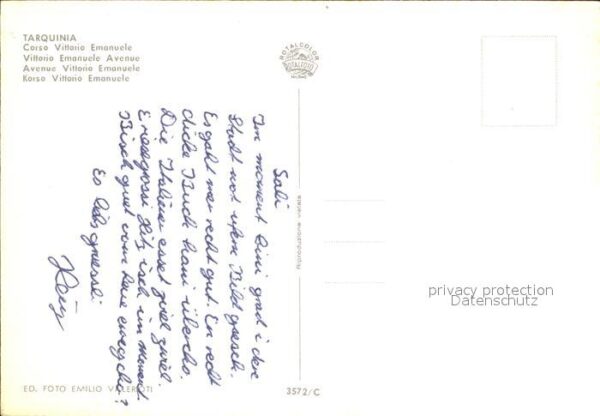 TARQUINIA
Corso Vittorio Emanuele
Vittorio Emanuele Avenue
Avenue Vittorio Emanuele
Korso Vittorio Emanuele
ROTALCOLOR
ROTALFOTO
MILANO
Sali
Im moment bini grad i dere
Stadt wot ufem Bild gsesch.
Es goht mer recht guet. En recht
dicke Buch hani übercho.
Die Italiener esset ziel
E riisegrossi Hitz isch im moment.
Bisch guet vom cho?
Es liebs grüessli
Riproduzione vietata
ED. FOTO EMILIO VALERIOTI
3572/C
privacy protection
Datenschutz